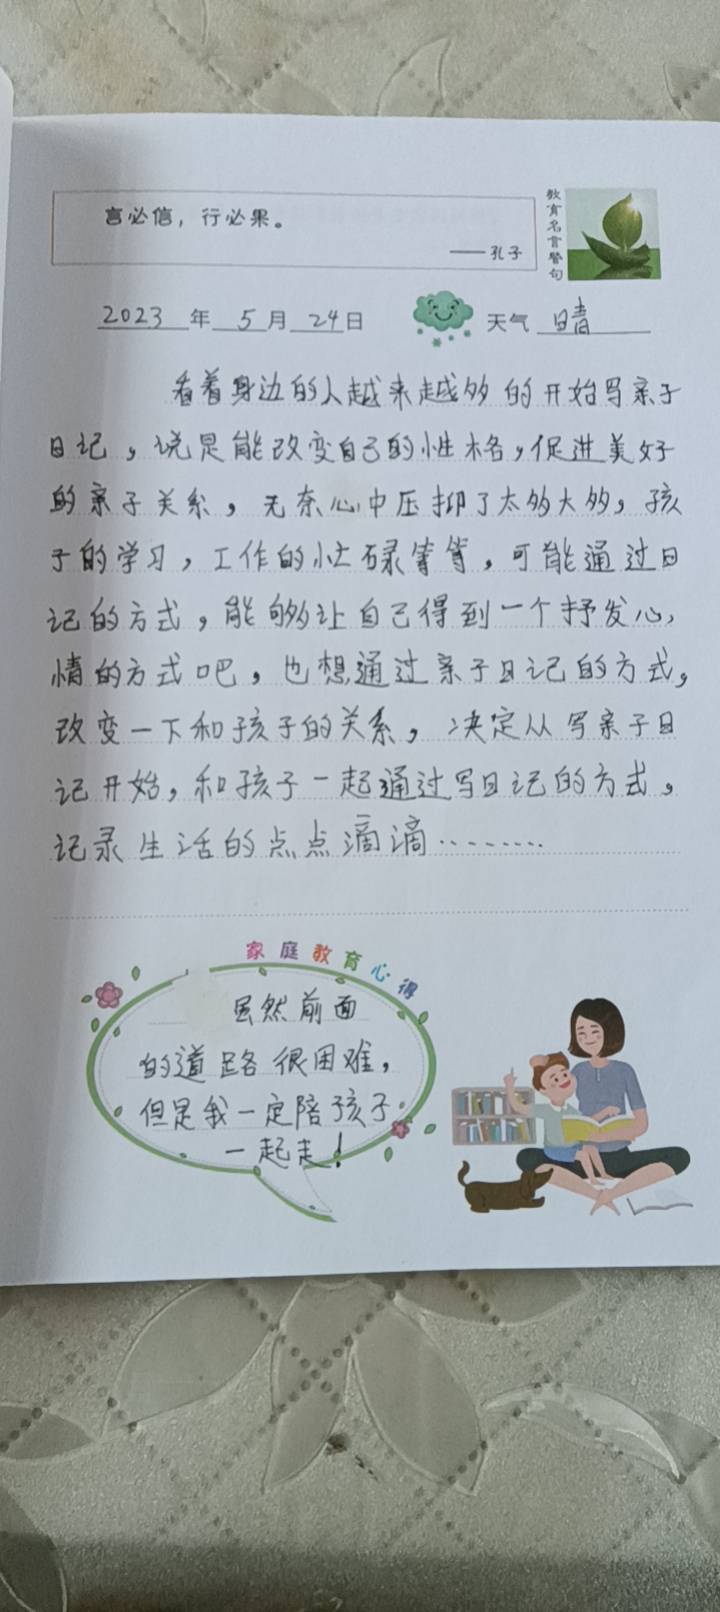 言必信，行必果。
——孔子
教育名言警句
2023年5月24日 天气 晴
看着身边的人越来越多的开始写亲子
日记，说是能改变自己的性格，促进美好
的亲子关系，无奈心中压抑了太多太多，孩
子的学习，工作的忙碌等等，可能通过日
记的方式，能够让自己得到一个抒发心
情的方式吧，也想通过亲子日记的方式，
改变一下和孩子的关系，决定从写亲子日
记开始，和孩子一起通过写日记的方式，
记录生活的点点滴滴………
家庭教育心得
虽然前面
的道路很困难，
但是我一定陪孩子
一起走！